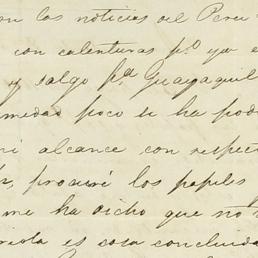 on las noticias del Peru
con calenturas p.º ya e
y salgo p.ª Guayaquil
medad poco se ha pod
mi alcance con respec
procuré los papeles
me ha dicho que no
es cosa concluida